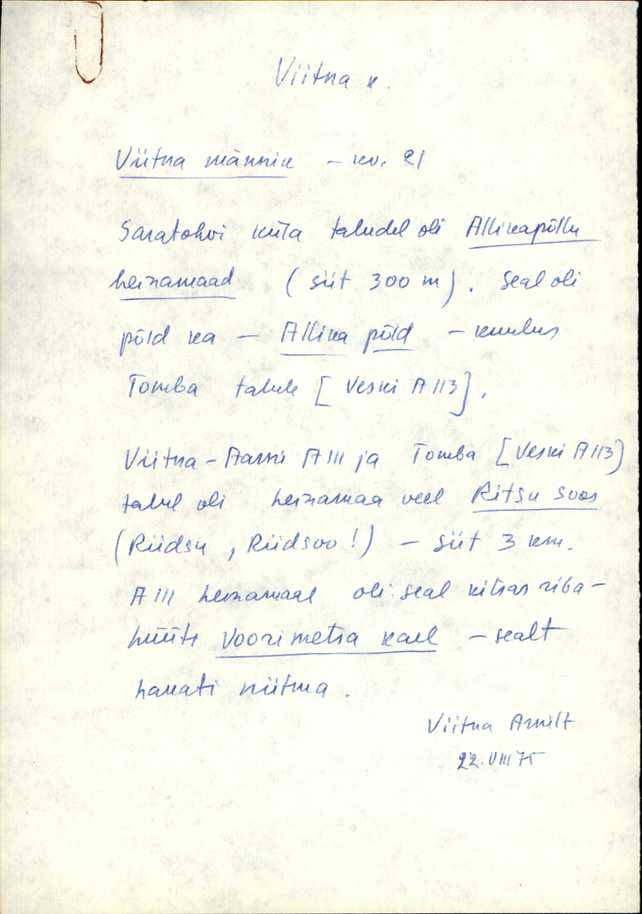 Viitna k.
Viitna männik – kv. 21
Saratohvi küla taludel oli Allikapõllu
heinamaad (siit 300 m). Seal oli
põld ka – Allika põld – kuulus
Tomba talule [Veski A 113].
Viitna-Aasu A 111 ja Tomba [Veski A 113]
talul oli heinamaa veel Ritsu soos
(Riidsu, Riidsoo!) – siit 3 km.
A 111 heinamaal oli seal kitsas riba –
hüüti Voorimetsa kael – sealt
hakati niitma.
Viitna Arnilt
22.VIII 75